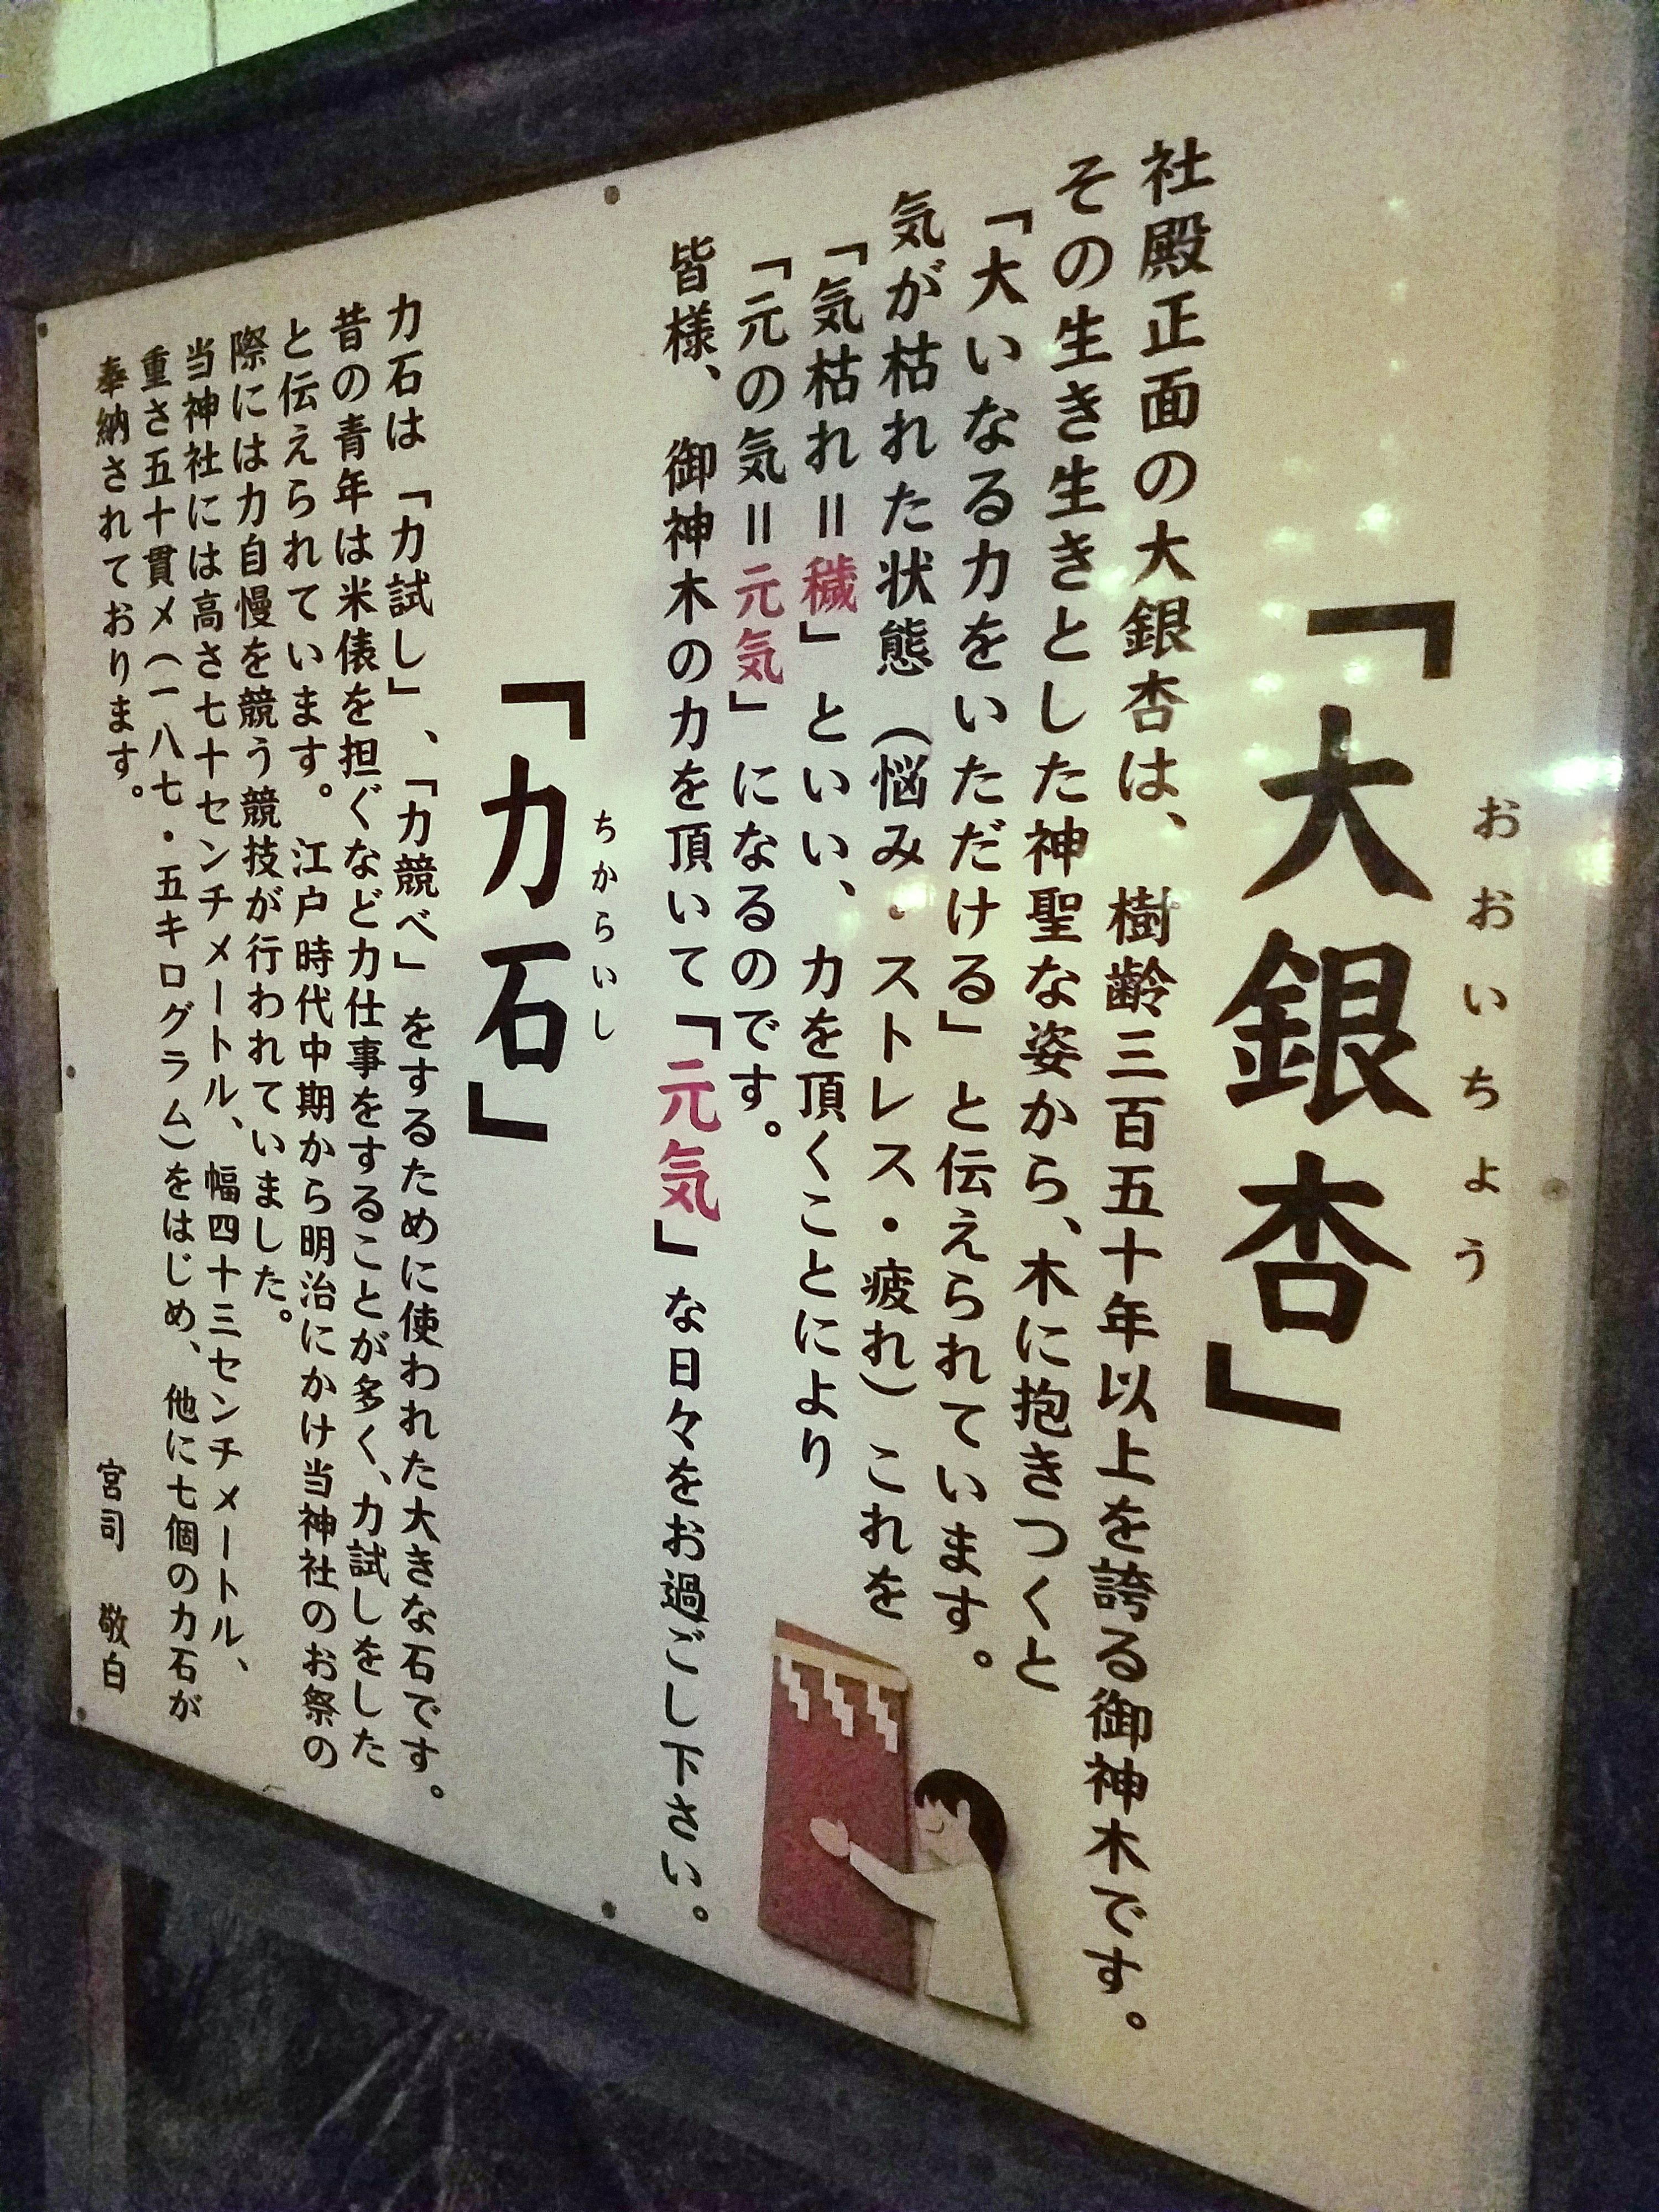 おおいちょう
「大銀杏」
社殿正面の大銀杏は、樹齢三百五十年以上を誇る御神木です。
その生き生きとした神聖な姿から、木に抱きつくと
「大いなる力をいただける」と伝えられています。
気が枯れた状態（悩み・ストレス・疲れ）これを
「気枯れ＝穢」といい、力を頂くことにより
「元の気＝元気」になるのです。
皆様、御神木の力を頂いて「元気」な日々をお過ごし下さい。
ちからいし
「力石」
力石は「力試し」、「力競べ」をするために使われた大きな石です。
昔の青年は米俵を担ぐなど力仕事をすることが多く、力試しをした
と伝えられています。江戸時代中期から明治にかけ当神社のお祭の
際には力自慢を競う競技が行われていました。
当神社には高さ七十センチメートル、幅四十三センチメートル、
重さ五十貫メ（一八七・五キログラム）をはじめ、他に七個の力石が
奉納されております。
宮司　敬白